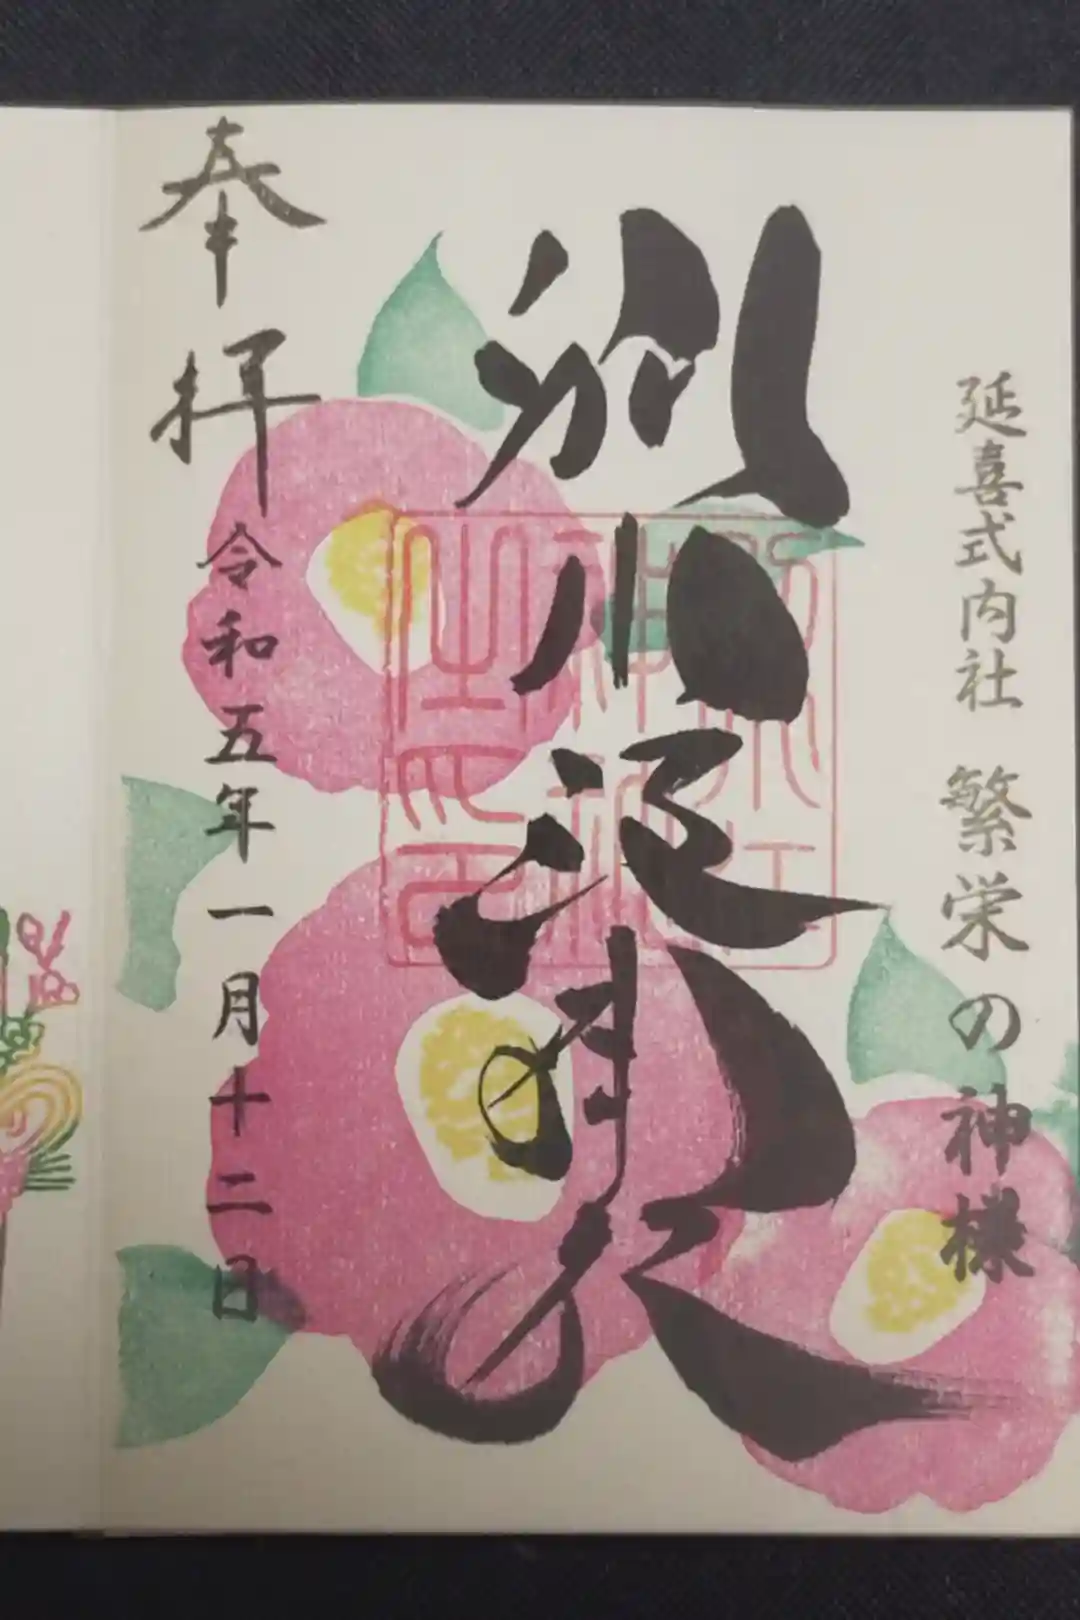 延喜式内社 繁栄の神様
別小江神社
別小江神社之印
奉拝
令和五年一月十二日